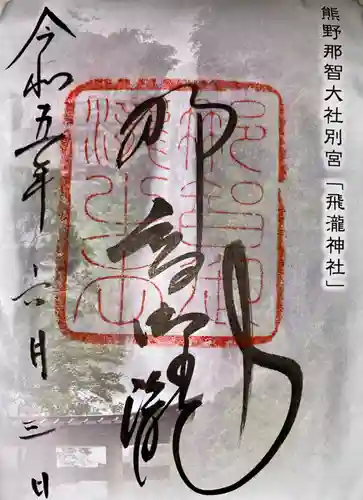 熊野那智大社別宮「飛瀧神社」
那智御瀧
令和五年六月三日